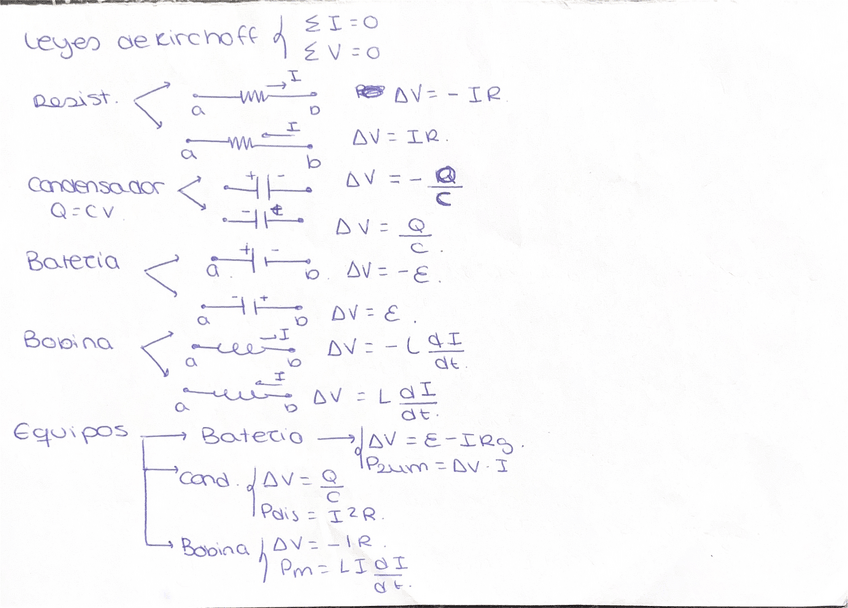 Leyes de kirchoff { Σ I = 0
Σ V = 0
Resist. a b I ΔV = - IR.
a b I ΔV = IR.
Condensador + - ΔV = - Q/C
Q = CV. - + ΔV = Q/C.
Bateria a b + - ΔV = -ε.
a b - + ΔV = ε.
Bobina a b I ΔV = - L dI/dt.
a b I ΔV = L dI/dt.
Equipos → Bateria → { ΔV = ε - IRg.
Psum = ΔV · I
Cond. { ΔV = Q/C
Pdis = I2R.
Bobina { ΔV = - IR.
Pm = LI dI/dt.